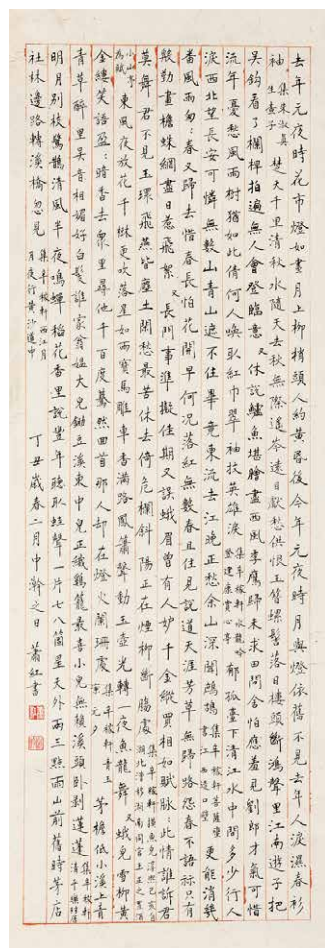 去年元夜時花市燈如晝月上柳梢頭人約黃昏後今年元夜時月與燈依舊不見去年人淚濕春衫
袖 集朱淑真生查子 楚天千里清秋水隨天去秋無際遙岑遠目獻愁供恨玉簪螺髻落日樓頭斷鴻聲里江南遊子把
吳鈎看了欄桿拍遍無人會登臨意 又 休說鱸魚堪膾盡西風季鷹歸未求田問舍怕應羞見劉郎才氣可惜
流年憂愁風雨樹猶如此倩何人喚取紅巾翠袖搵英雄淚 集辛稼軒水龍吟登建康賞心亭 郁孤臺下清江水中間多少行人
淚西北望長安可憐無數山青山遮不住畢竟東流去江晚正愁余山深聞鷓鴣 集辛稼軒菩薩蠻書江西造口壁 更能消幾
番風雨匆:春又歸去惜春長怕花開早何況落紅無數春且住見說道天涯芳草無歸路怨春不語祘只有
殷勤畫檐蛛網盡日惹飛絮 又 長門事準擬佳期又誤蛾眉曾有人妒千金縱買相如賦脈:此情誰訴君
莫舞君不見玉環飛燕皆塵土閑愁最苦休去倚危欄斜陽正在煙柳斷腸處 集辛稼軒摸魚兒淳熙己亥自湖北漕移湖南同官王正之置酒
小山亭為賦 東風夜放花千樹更吹落星如雨寶馬雕車香滿路鳳簫聲動玉壺光轉一夜魚龍舞 又 蛾兒雪柳黃
金縷笑語盈:暗香去衆里尋他千百度驀然回首那人却在燈火闌珊處 集辛稼軒青玉案元夕 茅檐低小溪上青
青草醉里吳音相媚好白髮誰家翁媼大兒鋤豆溪東中兒正織鷄籠最喜小兒無賴溪頭臥剝蓮蓬 集辛稼軒清平樂村居
明月別枝驚鵲清風半夜鳴蟬稻花香里說豐年聽取蛙聲一片七八箇星天外兩三點雨山前舊時茅店
社林邊路轉溪橋忽見 集辛稼軒西江月夜行黃沙道中 丁丑歲春二月中澣之日 蕭紅書